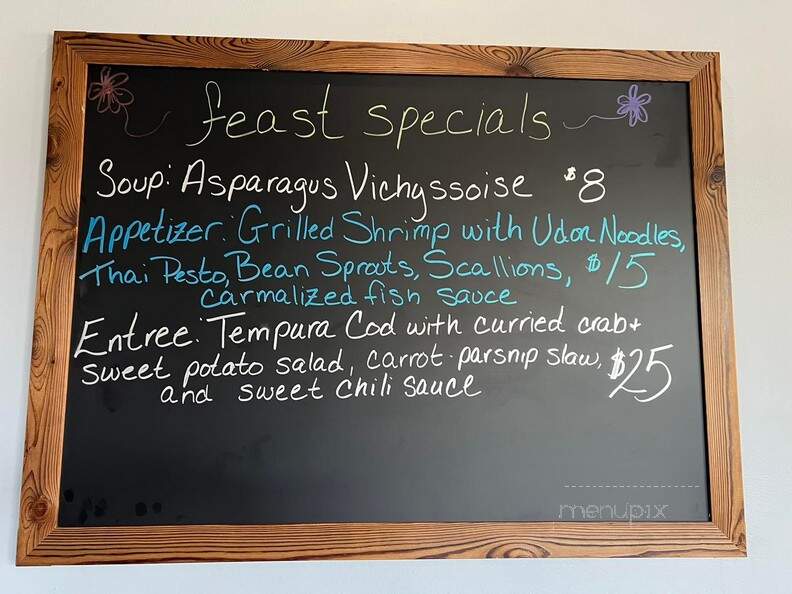 feast specials
Soup: Asparagus Vichyssoise $8
Appetizer: Grilled Shrimp with Udon Noodles,
Thai Pesto, Bean Sprouts, Scallions, $15
carmalized fish sauce
Entree: Tempura Cod with curried crab +
sweet potato salad, carrot-parsnip slaw, $25
and sweet chili sauce
menupix